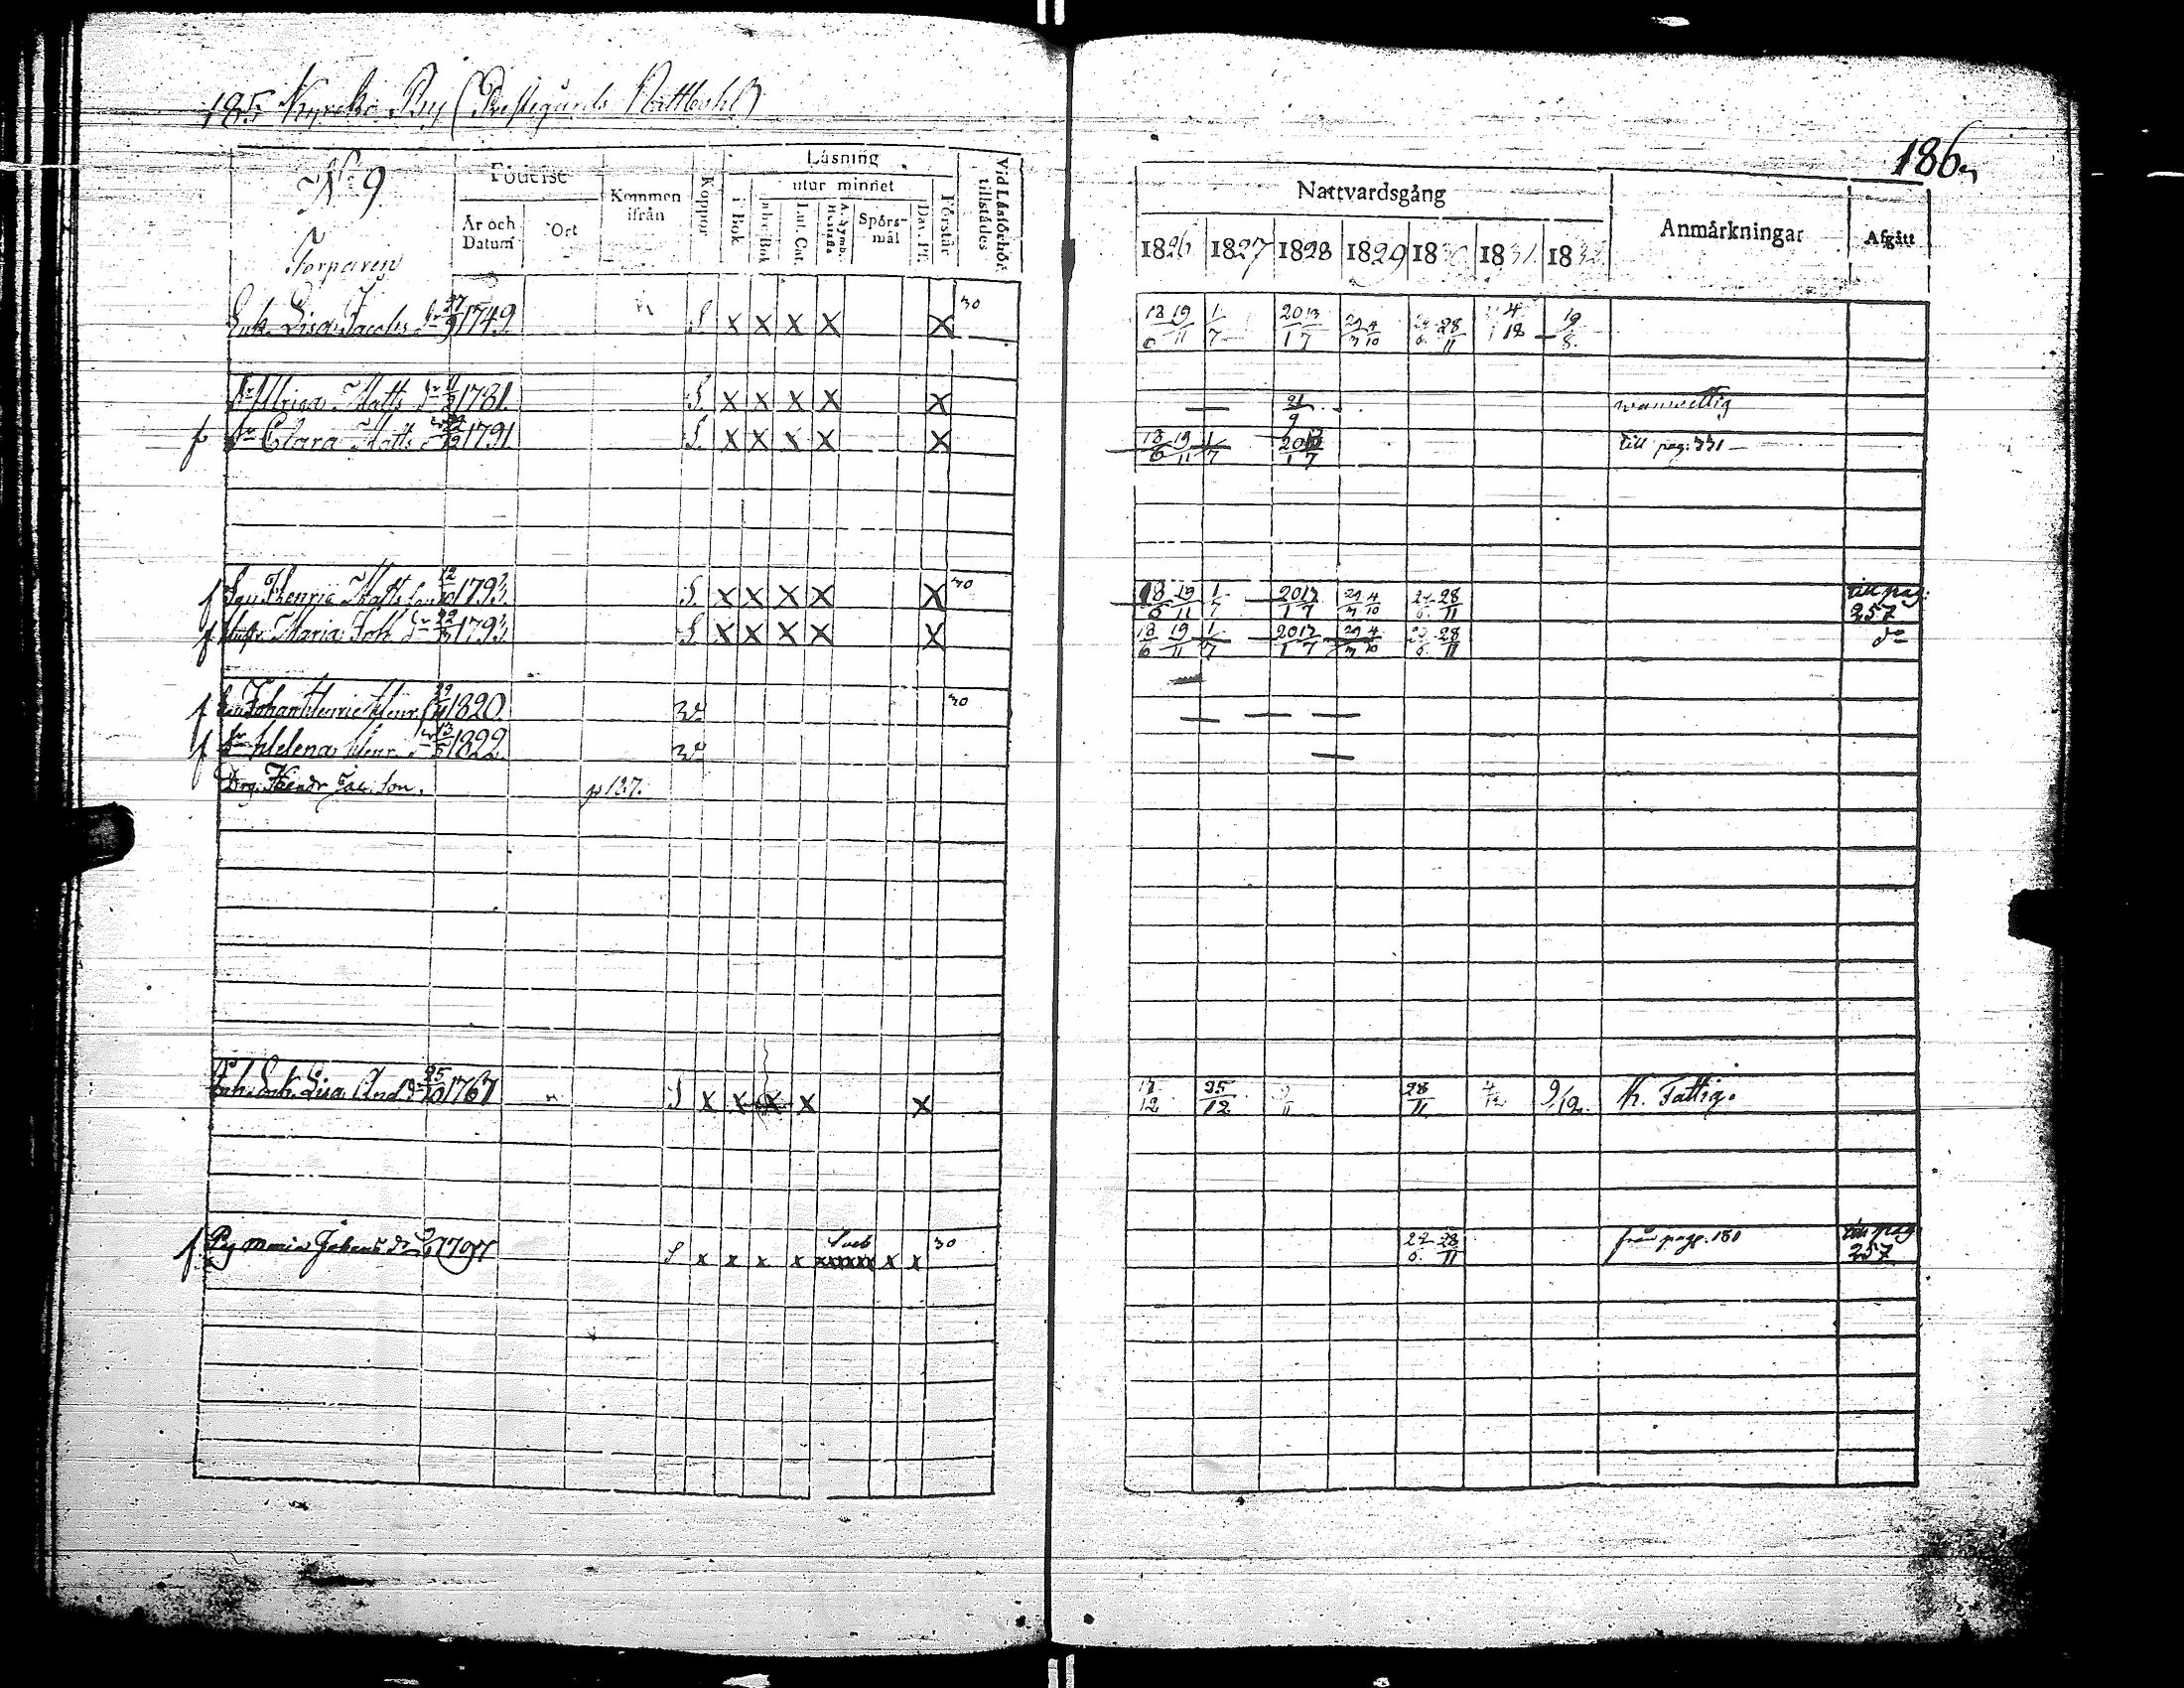 185 Kyrcko By (Prestegårds Råttbohl)
186.
No 9.
Torparen
Födelse
År och Datum
Ort
Kommen ifrån
Koppor
Läsning
utur minnet
i Bok
Lut. Cat.
Spörsmål
Dav. Ps.
Förstår
Vid Läsförhör tillstädes
Nattvardsgång
1826 1827 1828 1829 1830 1831 1832
Anmärkningar
Afgått
Enk. Lisa Jacobs dr 27/9 1749. S x x x x x 30 18/6 19/11 1/7 20/1 13/7 29/3 4/10 28/11 4 18 19/8
Dr Ulrica Matts dr 11/2 1781. S. x x x x x — 21/9 wanwettig
f Dr Clara Matts dr 22/12 1791. S. x x x x x 18/6 19/11 1/7 20/1 13/7 till pag. 331 —
f Son Henric Matts son 12/10 1793. S. x x x x x 30 18/6 19/11 1/7 20/1 13/7 29/3 4/10 28/11 till pag. 257
f Hust. Maria Joh. dr 22/3 1793. S x x x x x 18/6 19/11 1/7 20/1 13/7 29/3 4/10 28/11 do
f Son Johan Henric Henr. 1820. 30 — — —
f Dr Helena Henr. dr 13/5 1822. —
Drg. Hendr Jac. son. p 187.
Enk. Lisa And. dr 25/10 1767 S x x x x x 25/12 28/11 9/12. K. Fattig.
f Pig Maria Johans dr 1797 S x x x x xxxxxx x x 30 28/11 från pag. 180 till pag 257